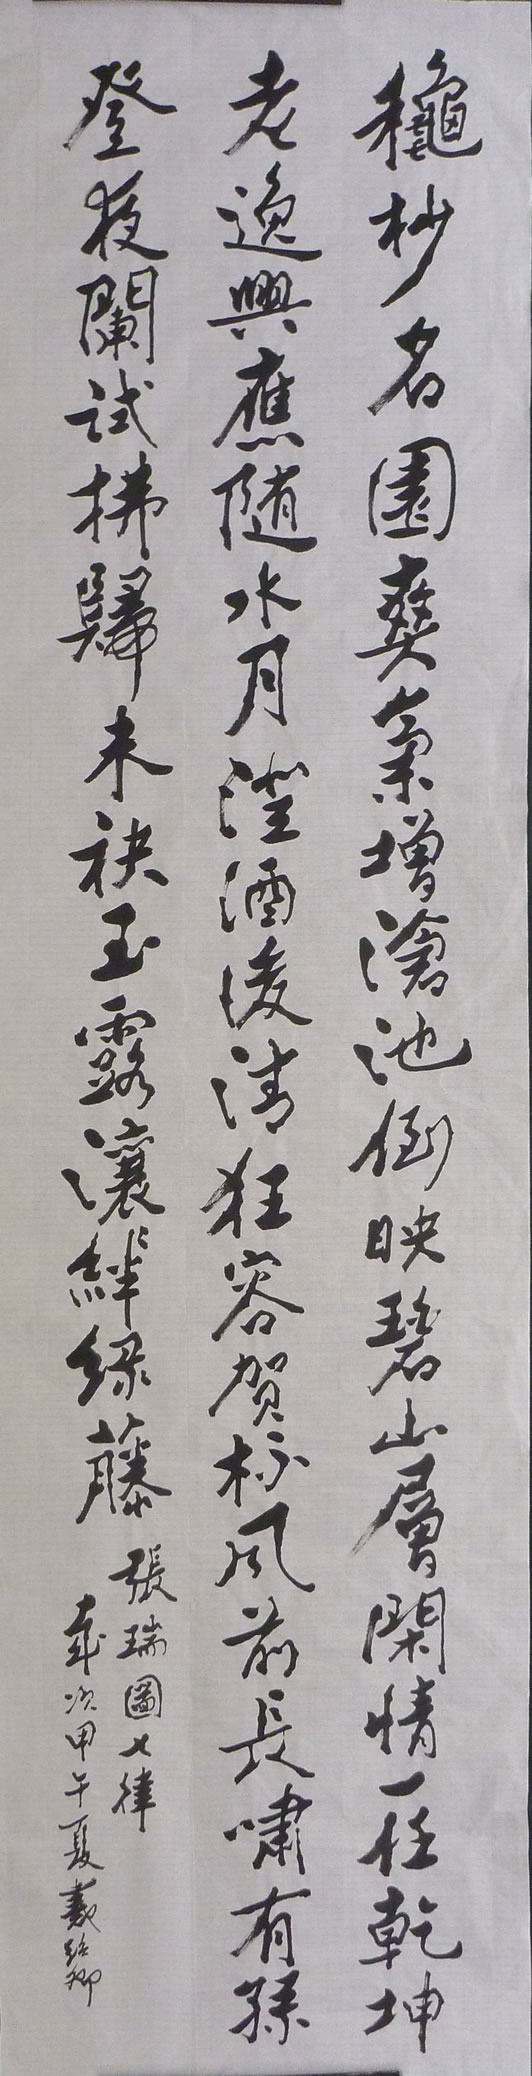 龝杪名園爽氣增滄池倒映碧山層閑情一任乾坤
老逸興應随水月澄酒後清狂容賀杨风前長嘯有孫
登夜闌試拂歸来袂玉露瀼瀼絆緑藤
張瑞圖七律
歲次甲午夏義